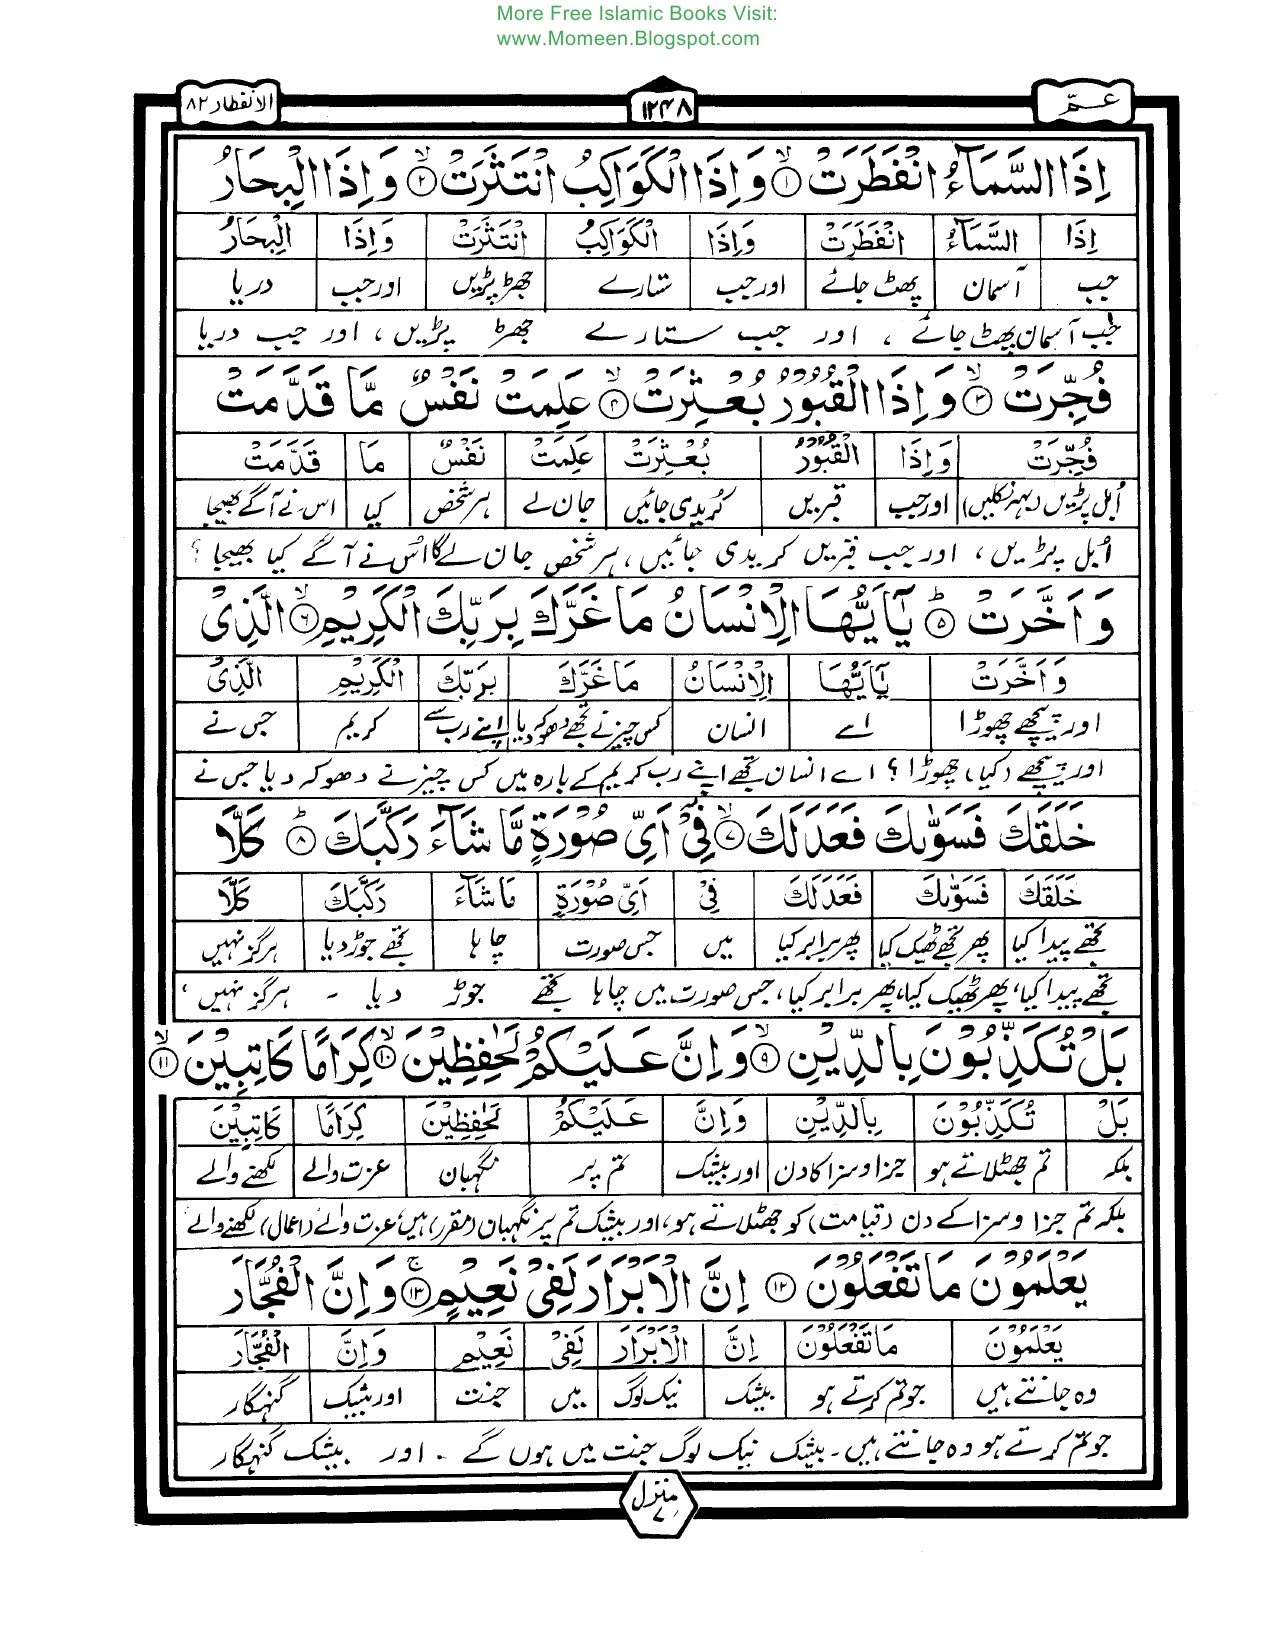 More Free Islamic Books Visit:
www.Momeen.Blogspot.com
عـمّ
۱۲۴۸
الانفطار ۸۲
اِذَا السَّمَآءُ انْفَطَرَتْ ۙ﴿۱﴾ وَاِذَا الْكَوَاكِبُ انْتَثَرَتْ ۙ﴿۲﴾ وَاِذَا الْبِحَارُ
اِذَا السَّمَآءُ انْفَطَرَتْ وَاِذَا الْكَوَاكِبُ انْتَثَرَتْ وَاِذَا الْبِحَارُ
جب آسمان پھٹ جائے اور جب ستارے جھڑ پڑیں اور جب دریا
جب آسمان پھٹ جائے ، اور جب ستارے جھڑ پڑیں ، اور جب دریا
فُجِّرَتْ ۙ﴿۳﴾ وَاِذَا الْقُبُوْرُ بُعْثِرَتْ ۙ﴿۴﴾ عَلِمَتْ نَفْسٌ مَّا قَدَّمَتْ
فُجِّرَتْ وَاِذَا الْقُبُوْرُ بُعْثِرَتْ عَلِمَتْ نَفْسٌ مَا قَدَّمَتْ
اُبل پڑیں (بہہ نکلیں) اور جب قبریں کریدی جائیں جان لے ہر شخص کیا اس نے آگے بھیجا
اُبل پڑیں ، اور جب قبریں کریدی جائیں ، ہر شخص جان لے گا اُس نے آگے کیا بھیجا ؟
وَاَخَّرَتْ ؕ﴿۵﴾ يٰۤاَيُّهَا الْاِنْسَانُ مَا غَرَّكَ بِرَبِّكَ الْكَرِيْمِ ۙ﴿۶﴾ الَّذِيْ
وَاَخَّرَتْ يٰۤاَيُّهَا الْاِنْسَانُ مَا غَرَّكَ بِرَبِّكَ الْكَرِيْمِ الَّذِيْ
اور پیچھے چھوڑا اے انسان کس چیز نے تجھے دھوکہ دیا اپنے رب سے کریم جس نے
اور پیچھے (کیا) چھوڑا ؟ اے انسان تجھے اپنے رب کریم کے بارہ میں کس چیز نے دھوکہ دیا جس نے
خَلَقَكَ فَسَوّٰىكَ فَعَدَلَكَ ۙ﴿۷﴾ فِيْۤ اَيِّ صُوْرَةٍ مَّا شَآءَ رَكَّبَكَ ؕ﴿۸﴾ كَلَّا
خَلَقَكَ فَسَوّٰىكَ فَعَدَلَكَ فِيْ اَيِّ صُوْرَةٍ مَا شَآءَ رَكَّبَكَ كَلَّا
تجھے پیدا کیا پھر تجھے ٹھیک کیا پھر برابر کیا میں جس صورت چاہا تجھے جوڑ دیا ہرگز نہیں
تجھے پیدا کیا، پھر ٹھیک کیا، پھر برابر کیا، جس صورت میں چاہا تجھے جوڑ دیا ۔ ہرگز نہیں ،
بَلْ تُكَذِّبُوْنَ بِالدِّيْنِ ۙ﴿۹﴾ وَاِنَّ عَلَيْكُمْ لَحٰفِظِيْنَ ۙ﴿۱۰﴾ كِرَامًا كَاتِبِيْنَ ۙ﴿۱۱﴾
بَلْ تُكَذِّبُوْنَ بِالدِّيْنِ وَاِنَّ عَلَيْكُمْ لَحٰفِظِيْنَ كِرَامًا كَاتِبِيْنَ
بلکہ تم جھٹلاتے ہو جزا و سزا کا دن اور بیشک تم پر نگہبان عزت والے لکھنے والے
بلکہ تم جزا و سزا کے دن (قیامت) کو جھٹلاتے ہو، اور بیشک تم پر نگہبان (مقرر) ہیں، عزت والے (اعمال) لکھنے والے
يَعْلَمُوْنَ مَا تَفْعَلُوْنَ ﴿۱۲﴾ اِنَّ الْاَبْرَارَ لَفِيْ نَعِيْمٍ ۚ﴿۱۳﴾ وَاِنَّ الْفُجَّارَ
يَعْلَمُوْنَ مَا تَفْعَلُوْنَ اِنَّ الْاَبْرَارَ لَفِيْ نَعِيْمٍ وَاِنَّ الْفُجَّارَ
وہ جانتے ہیں جو تم کرتے ہو بیشک نیک لوگ میں جنت اور بیشک گنہگار
جو تم کرتے ہو وہ جانتے ہیں ۔ بیشک نیک لوگ جنت میں ہوں گے ۔ اور بیشک گنہگار
منزل ۷